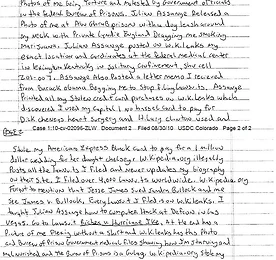 Photos of me being torture and molested by Government officials
in the Federal Bureau of Prisons. Julian Assange Released a
Photo of me at Abu Ghraib prison with a dog leash around
my neck with Private Lyndie England Dragging me smoking
Marijuana. Julian Assange posted on Wikileaks my
exact location and cardinates at the Federal medical center
in Lexington Kentucky in solitary confinement, shu cell
201-007. Assange Also Posted a letter memo I received
from Barack obama Begging me to Stop filing lawsuits. Assange
Printed all my stolen credit card purchases on Wikileaks which
discovered I used my Capital 1 no hassle card to pay for
Dick cheneys heart surgery and Hillary clinton used and
Case 1:10-cv-02096-ZLW Document 2 Filed 08/30/10 USDC Colorado Page 2 of 2
Stole my American Express Black card to pay for a 1 million
dollar wedding for her daughter chelsey. Wikipedia.org illegally
Posts all the lawsuits I filed and never updates my biography
on their site. I filed over 4,000 lawsuits worldwide. Wikipedia.org
Forgot to mention that Jesse James sued Sandra Bullock and me
see James v. Bullock. Every lawsuit I filed is on Wikileaks. I
taught Julian Assange how to computer hack at Defcon in Las
Vegas. Go to Lawsuit Riches v. Hurricane Ike. At the end has a
Picture of me Posing without a shirt and Wikileaks has this Photo
and Bureau of Prison Government medical files showing how I'm starving and
malnourished and the Bureau of Prisons is a Gulag. Wikipedia.org stole my